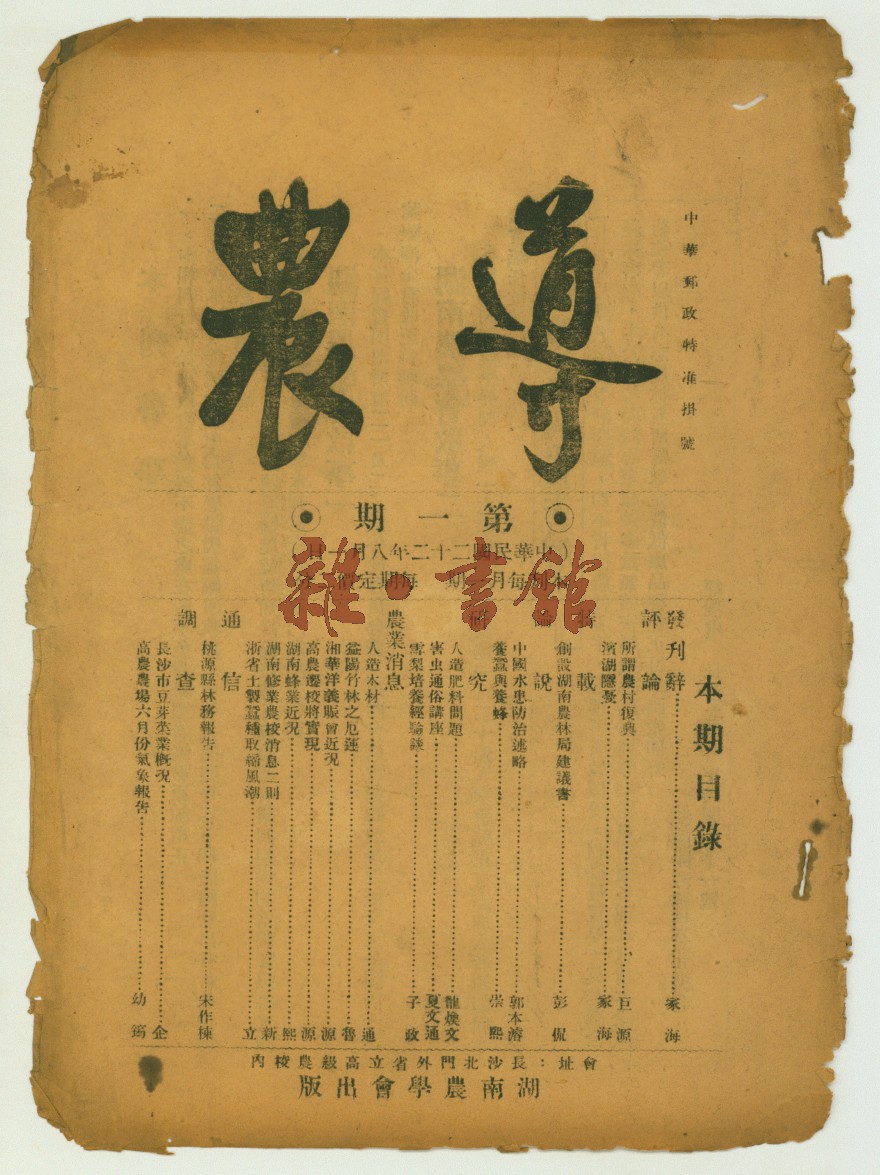 中華郵政特准掛號
導農
第一期
(中華民國二十二年八月一日)
每月一期 每期定價
雜·書館
本期目錄
發刊辭……家海
評論
所謂農村復興……巨源
濱湖隱憂……家海
特載
創設湖南農林局建議書……彭侃
論說
中國水患防治述略……郭本濬
養蠶與養蜂……崇熙
研究
人造肥料問題……龍煥文
害虫通俗講座……夏文通
雪梨培養經驗談……子政
農業消息
人造木材……通
益陽竹林之厄運……魯
湘華洋義賑會近況……源
高農遷校將實現……源
湖南蜂業近況……熙
湖南修業農校消息二則……新
浙省土製蠶種取締風潮……立
通信
桃源縣林務報告……宋作楝
調查
長沙市豆芽菜業概況……企
高農農場六月份氣象報告……幼筠
會址:長沙北門外省立高級農校內
湖南農學會出版